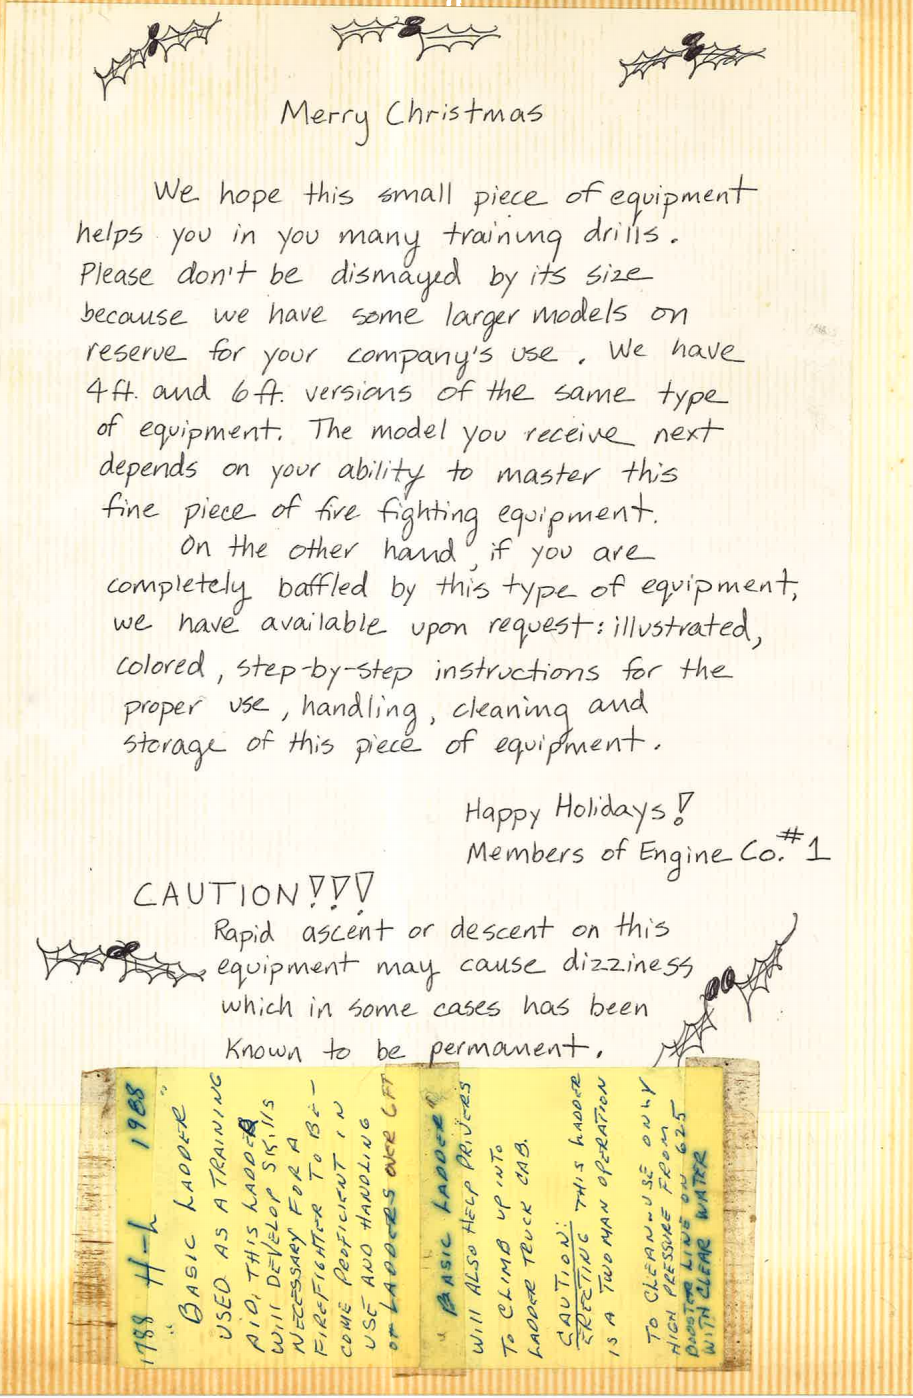 Merry Christmas
We hope this small piece of equipment
helps you in you many training drills.
Please don't be dismayed by its size
because we have some larger models on
reserve for your company's use. We have
4ft. and 6ft. versions of the same type
of equipment. The model you receive next
depends on your ability to master this
fine piece of fire fighting equipment.
On the other hand, if you are
completely baffled by this type of equipment,
we have available upon request: illustrated,
colored, step-by-step instructions for the
proper use, handling, cleaning and
storage of this piece of equipment.
Happy Holidays!
Members of Engine Co. #1
CAUTION!!!
Rapid ascent or descent on this
equipment may cause dizziness
which in some cases has been
known to be permanent.
1988 H-L 1988
"BASIC LADDER"
USED AS A TRAINING
AID, THIS LADDER
WILL DEVELOP SKILLS
NECESSARY FOR A
FIREFIGHTER TO BE-
COME PROFICIENT IN
USE AND HANDLING
OF LADDERS OVER 6FT
"BASIC LADDER"
WILL ALSO HELP DRIVERS
TO CLIMB UP INTO
LADDER TRUCK CAB.
CAUTION:
ERECTING THIS LADDER
IS A TWO MAN OPERATION
TO CLEAN-USE ONLY
HIGH PRESSURE FROM
BOOSTER LINE ON 625
WITH CLEAR WATER